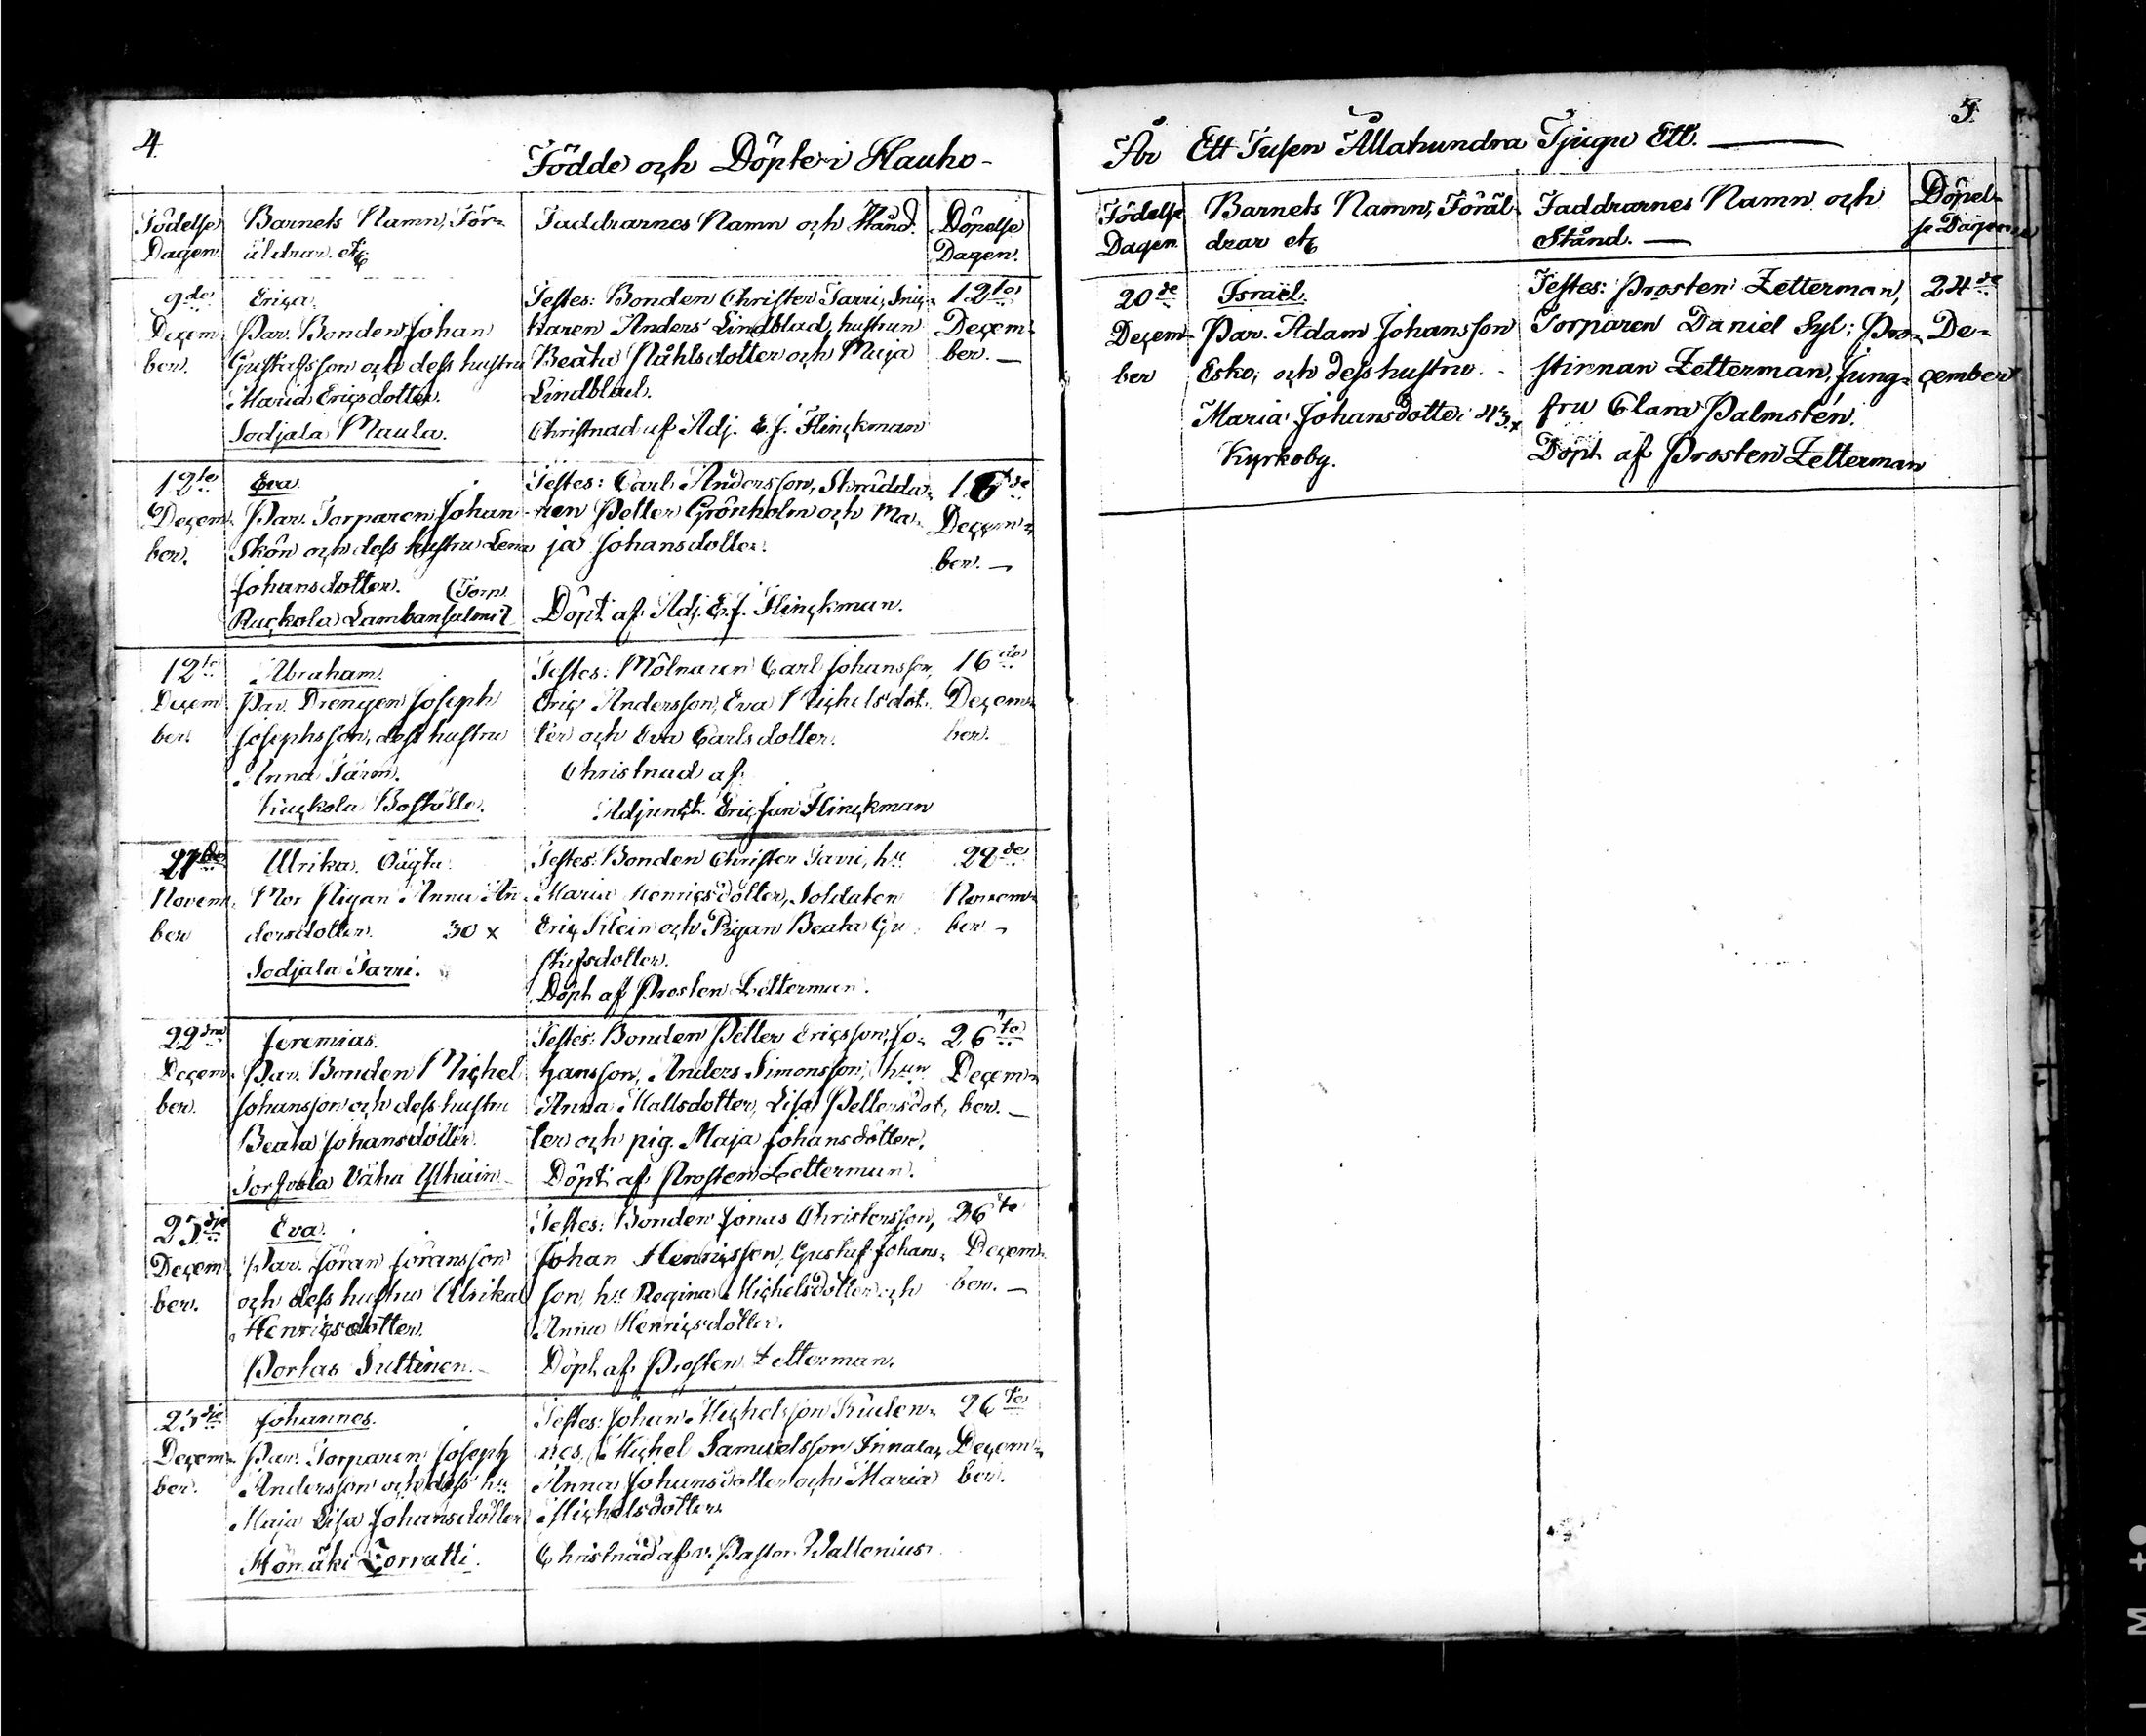 4.
Födde och Döpte i Hauho-
Födelse Dagen.
Barnets Namn, För-
äldrar. etc
Faddrarnes Namn och Stånd.
Döpelse Dagen.
9de Decem-
ber.
Erica.
Par. Bonden Johan
Gustafsson och dess hustru
Maria Ericsdotter.
Sodjala Maula.
Testes: Bonden Christer Jarri, Snic-
karen Anders Lindblad, hustrun
Beata Påhlsdotter och Maja
Lindblad.
Christnad af Adj. E. J. Flinckman
12te
Decem-
ber. —
12te
Decem-
ber.
Eva
Par. Torparen Johan
Skön och dess hustru Lena
Johansdotter. (Torp.
Ruckola Lambansalmi
Testes: Carl Andersson, Skrädda-
ren Petter Grönholm och Ma-
ja Johansdotter.
Döpt af Adj. E. J. Flinckman.
16de
Decem-
ber. —
12te
Decem
ber.
Abraham.
Par. Drengen Joseph
Josephsson, dess hustru
Anna
Boställe.
Testes: Mölnaren Carl Johansson,
Eric Andersson, Eva Michelsdot-
ter och Eva Carlsdotter.
Christnad af
Adjunct. Eric Jan Flinckman
16de
Decem-
ber.
27de
Novem-
ber
Ulrika. Oägta
Mor Pigan Anna An-
dersdotter. 30 x
Sodjala Jarri.
Testes: Bonden Christer Jarri, hu
Maria Henricsdotter, Soldaten
Eric Klein och Pigan Beata Gu-
stafsdotter.
Döpt af Prosten Zetterman.
28de
Novem-
ber —
22dra
Decem-
ber.
Jeremias.
Par. Bonden Michel
Johansson och dess hustru
Beata Johansdotter.
Väha
Testes: Bonden Petter Ericsson, Jo-
hansson, Anders Simonsson, hun
Anna Mattsdotter, Lisa Pettersdot-
ter och pig. Maja Johansdotter.
Döpt af Prosten Zetterman.
26te
Decem-
ber. —
23dje
Decem
ber.
Eva.
Par. Jöran Jöransson
och dess hustru Ulrika
Henricsdotter.
Portas Suttinen.
Testes: Bonden Jonas Christersson,
Johan Henricsson, Gustaf Johans-
son, hu Regina Michelsdotter och
Anna Henricsdotter.
Döpt af Prosten Zetterman.
26te
Decem-
ber. —
23dje
Decem-
ber.
Johannes.
Par. Torparen Joseph
Andersson och dess hu
Maja Lisa Johansdotter
Torratti.
Testes: Johan Michelsson
Michel Samuelsson
Anna Johansdotter och Maria
Michelsdotter.
Christnad af v. Pastor Wallenius.
26te
Decem-
ber.
5.
År Ett Tusen Åttahundra Tjugu Ett. —
Födelse
Dagen
Barnets Namn, Föräl-
drar etc
Faddrarnes Namn och
Stånd. —
Döpel-
se Dagen
20de
Decem-
ber
Israël.
Par. Adam Johansson
Esko, och dess hustru
Maria Johansdotter 43. x
Kyrkoby.
Testes: Prosten Zetterman,
Torparen Daniel Syl; Pro-
stinnan Zetterman, Jung-
fru Clara Palmstén.
Döpt af Prosten Zetterman
24de
De-
cember